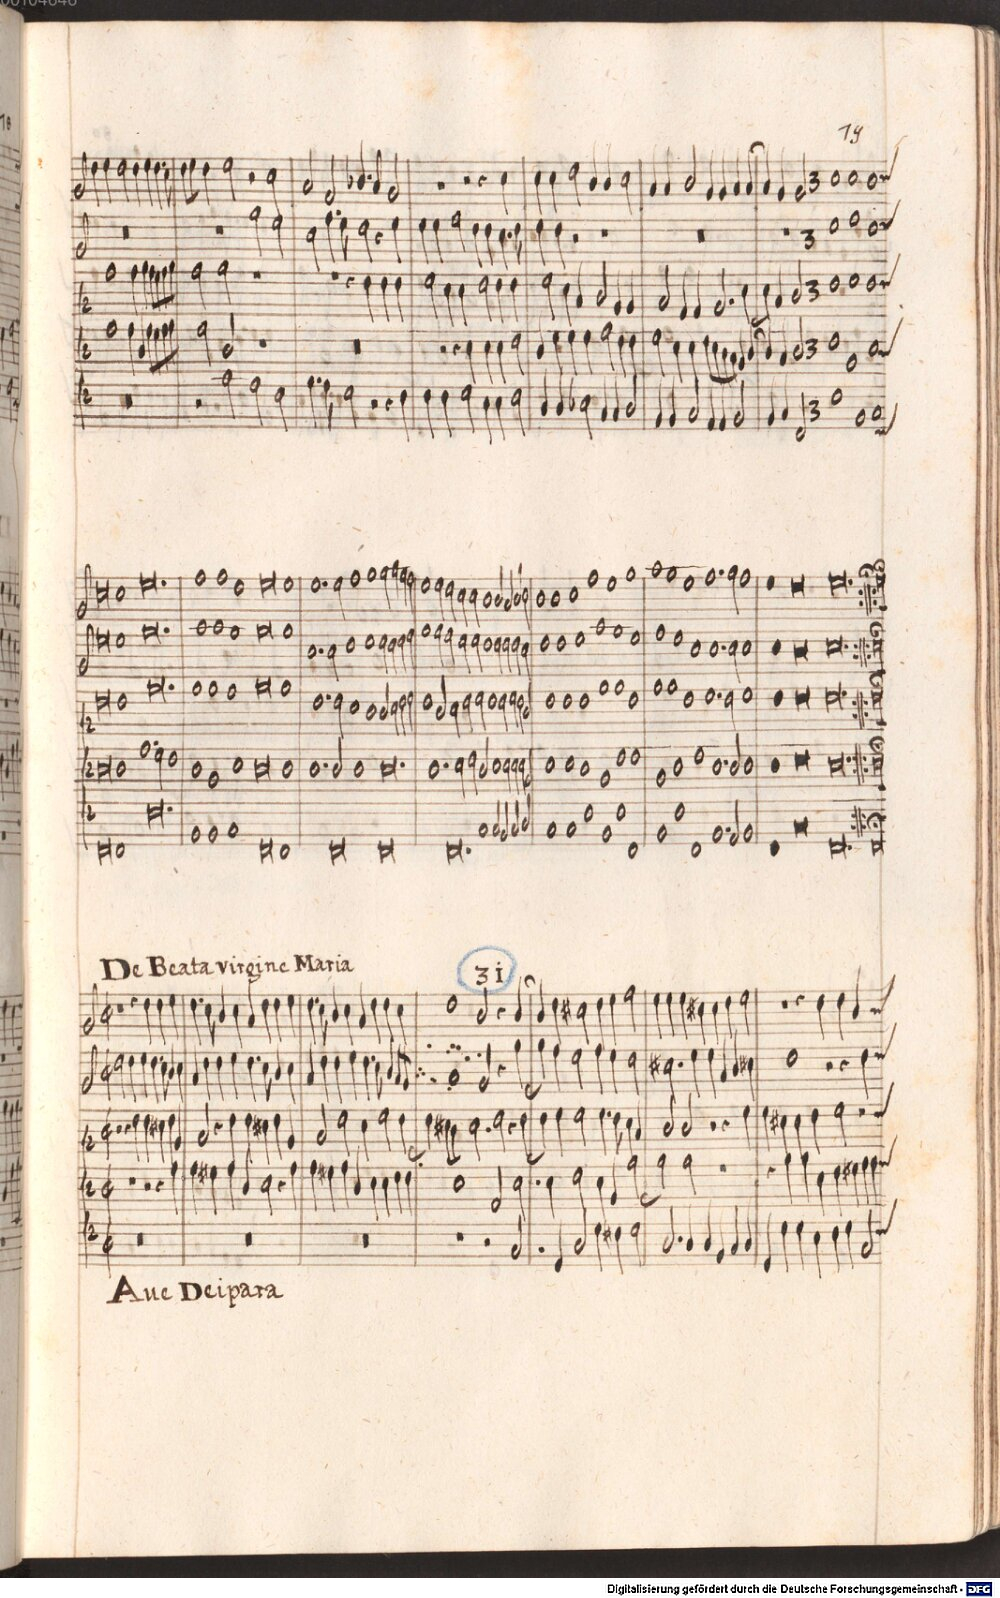 19
De Beata virgine Maria
3i
Aue Deipara
Digitalisierung gefördert durch die Deutsche Forschungsgemeinschaft - DFG